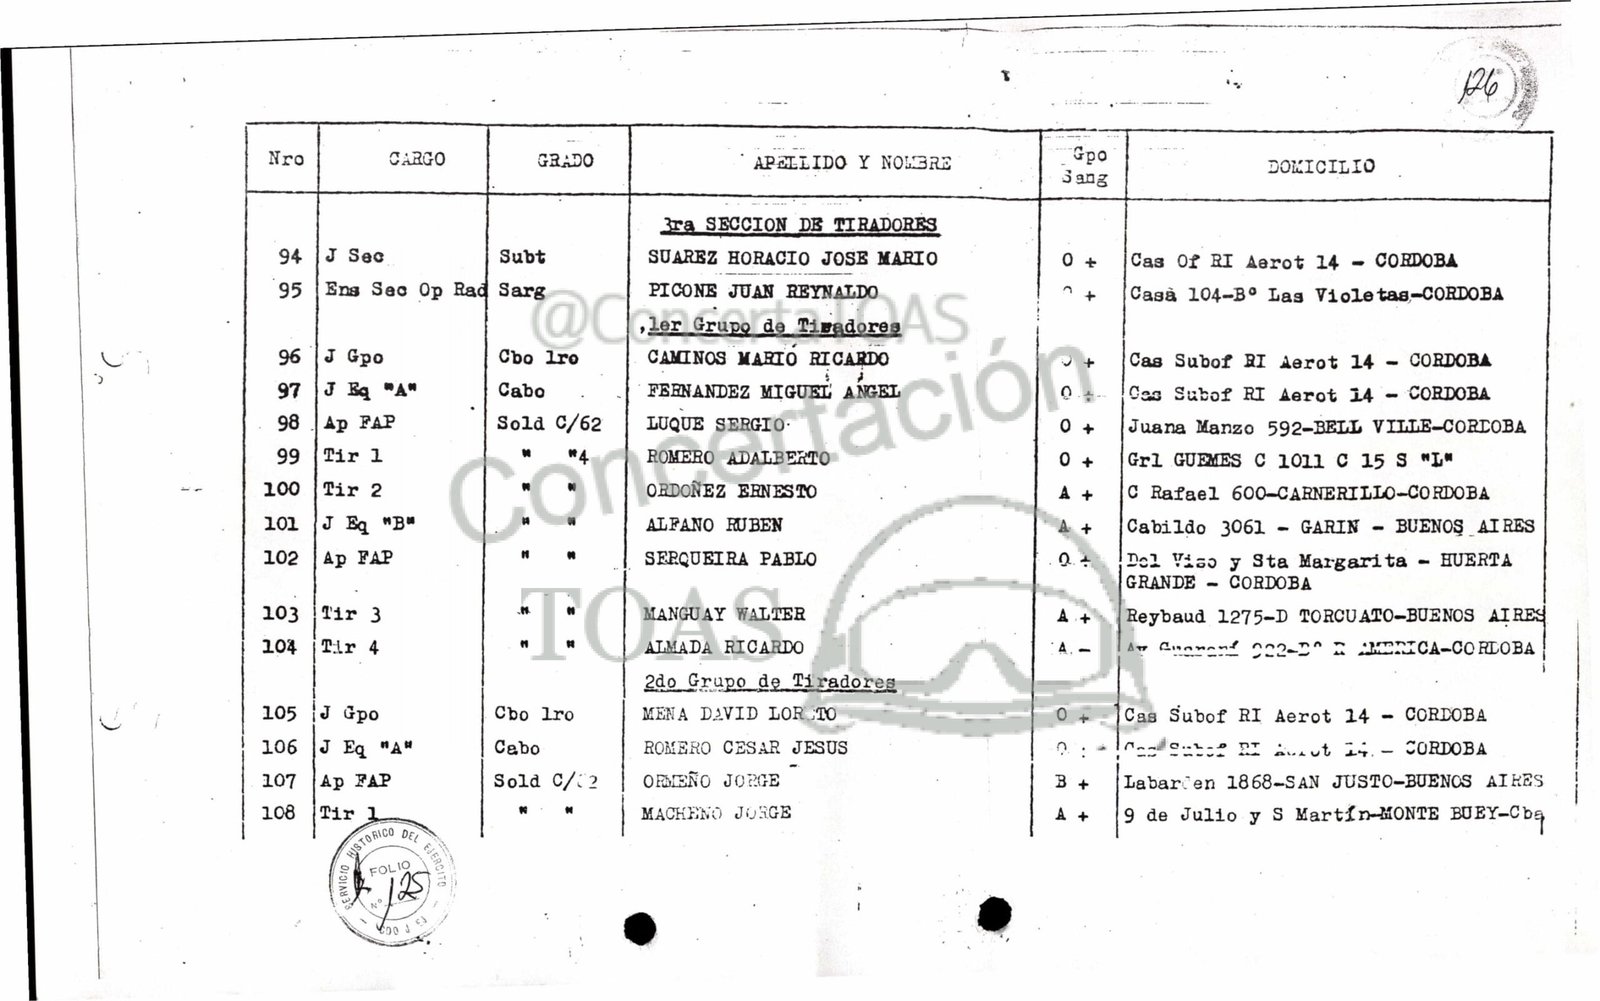 126
Nro CARGO GRADO APELLIDO Y NOMBRE Gpo Sang DOMICILIO
3ra SECCION DE TIRADORES
94 J Sec Subt SUAREZ HORACIO JOSE MARIO O + Cas Of RI Aerot 14 - CORDOBA
95 Ens Sec Op Rad Sarg PICONE JUAN REYNALDO + Casa 104-Bº Las Violetas-CORDOBA
@ConcertaTOAS
1er Grupo de Tiradores
96 J Gpo Cbo 1ro CAMINOS MARIO RICARDO O + Cas Subof RI Aerot 14 - CORDOBA
97 J Eq "A" Cabo FERNANDEZ MIGUEL ANGEL O Cas Subof RI Aerot 14 - CORDOBA
98 Ap FAP Sold C/62 LUQUE SERGIO O + Juana Manzo 592-BELL VILLE-CORDOBA
99 Tir 1 " "4 ROMERO ADALBERTO O + Grl GUEMES C 1011 C 15 S "L"
100 Tir 2 " " ORDOÑEZ ERNESTO A + C Rafael 600-CARNERILLO-CORDOBA
101 J Eq "B" " " ALFANO RUBEN A + Cabildo 3061 - GARIN - BUENOS AIRES
102 Ap FAP " " SERQUEIRA PABLO O + Del Viso y Sta Margarita - HUERTA
GRANDE - CORDOBA
103 Tir 3 " " MANGUAY WALTER A + Reybaud 1275-D TORCUATO-BUENOS AIRES
104 Tir 4 " " ALMADA RICARDO A - Av AMERICA-CORDOBA
2do Grupo de Tiradores
105 J Gpo Cbo 1ro MENA DAVID LORETO O + Cas Subof RI Aerot 14 - CORDOBA
106 J Eq "A" Cabo ROMERO CESAR JESUS O Cas Subof RI Aerot 14 - CORDOBA
107 Ap FAP Sold C/62 ORMEÑO JORGE B + Labarden 1868-SAN JUSTO-BUENOS AIRES
108 Tir 1 " " MACHENO JORGE A + 9 de Julio y S Martín-MONTE BUEY-Cba
Concertación
TOAS
SERVICIO HISTORICO DEL EJERCITO
FOLIO
Nº 125